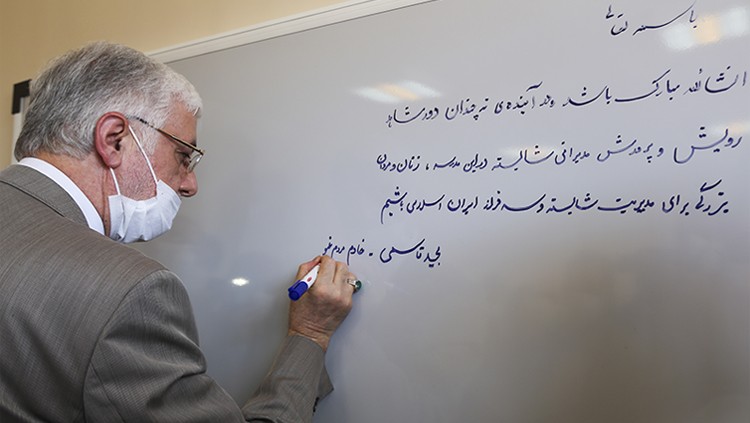 باسمه تعالی
انشاالله مبارک باشد و در آینده‌ی نه چندان دور شاهد
رویش و پرورش مدیرانی شایسته در این مدرسه، زنان و مردان
بزرگی برای مدیریت شایسته و سرفراز ایران اسلامی باشیم
مجید قاسمی - خادم مردم